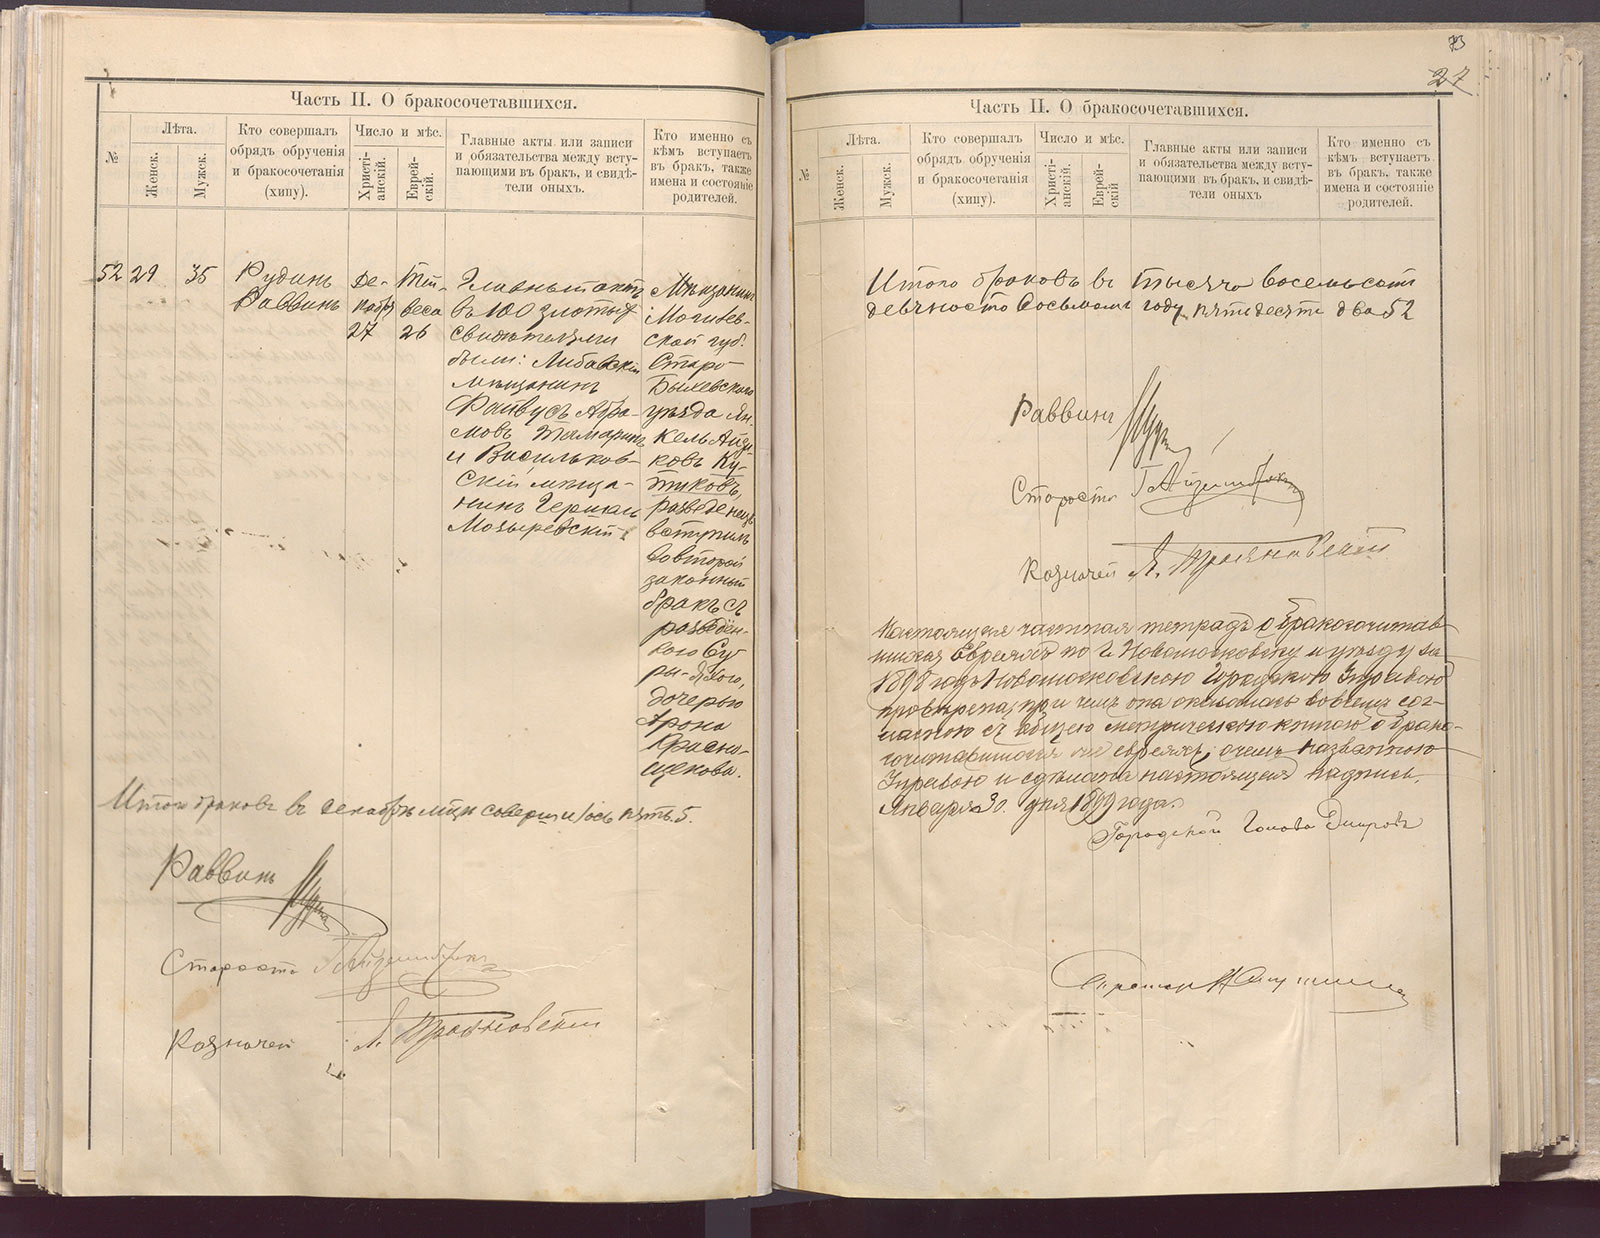 Часть II. О бракосочетавшихся.
№
Лѣта.
Женск.
Мужск.
Кто совершалъ
обрядъ обрученія
и бракосочетанія
(хипу).
Число и мѣс.
Христі-
анскій.
Еврей-
скій.
Главные акты или записи
и обязательства между всту-
пающими въ бракъ, и свидѣ-
тели оныхъ.
Кто именно съ
кѣмъ вступаетъ
въ бракъ, также
имена и состояніе
родителей.
52
29
35
Рудинъ
Раввинъ
Де-
кабря
27
Тей-
веса
26
Главный актъ
въ 100 злотыхъ
свидѣтелями
были: Либавскій
мѣщанинъ
Файвусъ Абра-
мовъ Тамаринъ
и Васильков-
скій мѣща-
нинъ Гершонъ
Мозыревскій
Мѣщанинъ
Могилев-
ской губ.
Старо-
Быховского
уѣзда Ян-
кель Айзи-
ковъ Ку-
тиковъ,
разведенный
вступилъ
во второй
законный
бракъ съ
разведен-
ною Су-
рой-
дочерью
Арона
Красно-
щекова.
Итого браковъ въ декабрѣ м-цѣ совершилось пять 5.
Раввинъ
Староста
Казначей Л. Трояновскій
73
27
Часть II. О бракосочетавшихся.
№
Лѣта.
Женск.
Мужск.
Кто совершалъ
обрядъ обрученія
и бракосочетанія
(хипу).
Число и мѣс.
Христі-
анскій.
Еврей-
скій
Главные акты или записи
и обязательства между всту-
пающими въ бракъ, и свидѣ-
тели оныхъ
Кто именно съ
кѣмъ вступаетъ
въ бракъ, также
имена и состояніе
родителей.
Итого браковъ въ тысяча восемьсотъ
девяносто восьмомъ году пятьдесятъ два 52
Раввинъ
Староста
Казначей Л. Трояновскій
Настоящая частная тетрадь о бракосочетав-
шихся Евреяхъ по г. Новомосковску и уѣзду за
1898 годъ Новомосковскою Городскою Управою
провѣрена, при чемъ она оказалась вовсемъ сог-
ласною съ общею метрическою книгою о брако-
сочетавшихся евреяхъ, о чемъ названною
Управою и сдѣлана настоящая надпись.
Января 30. дня 1899 года.
Городской Голова